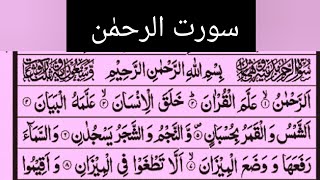 سورت الرحمٰن
بِسْمِ اللّٰهِ الرَّحْمٰنِ الرَّحِيْمِ
اَلرَّحْمٰنُ ۙ۱ عَلَّمَ الْقُرْاٰنَ ؕ۲ خَلَقَ الْاِنْسَانَ ۙ۳ عَلَّمَهُ الْبَيَانَ ۴
اَلشَّمْسُ وَ الْقَمَرُ بِحُسْبَانٍ ۪۵ وَّ النَّجْمُ وَ الشَّجَرُ يَسْجُدٰنِ ۶ وَ السَّمَآءَ
رَفَعَهَا وَ وَضَعَ الْمِيْزَانَ ۙ۷ اَلَّا تَطْغَوْا فِي الْمِيْزَانِ ۸ وَ اَقِيْمُوا